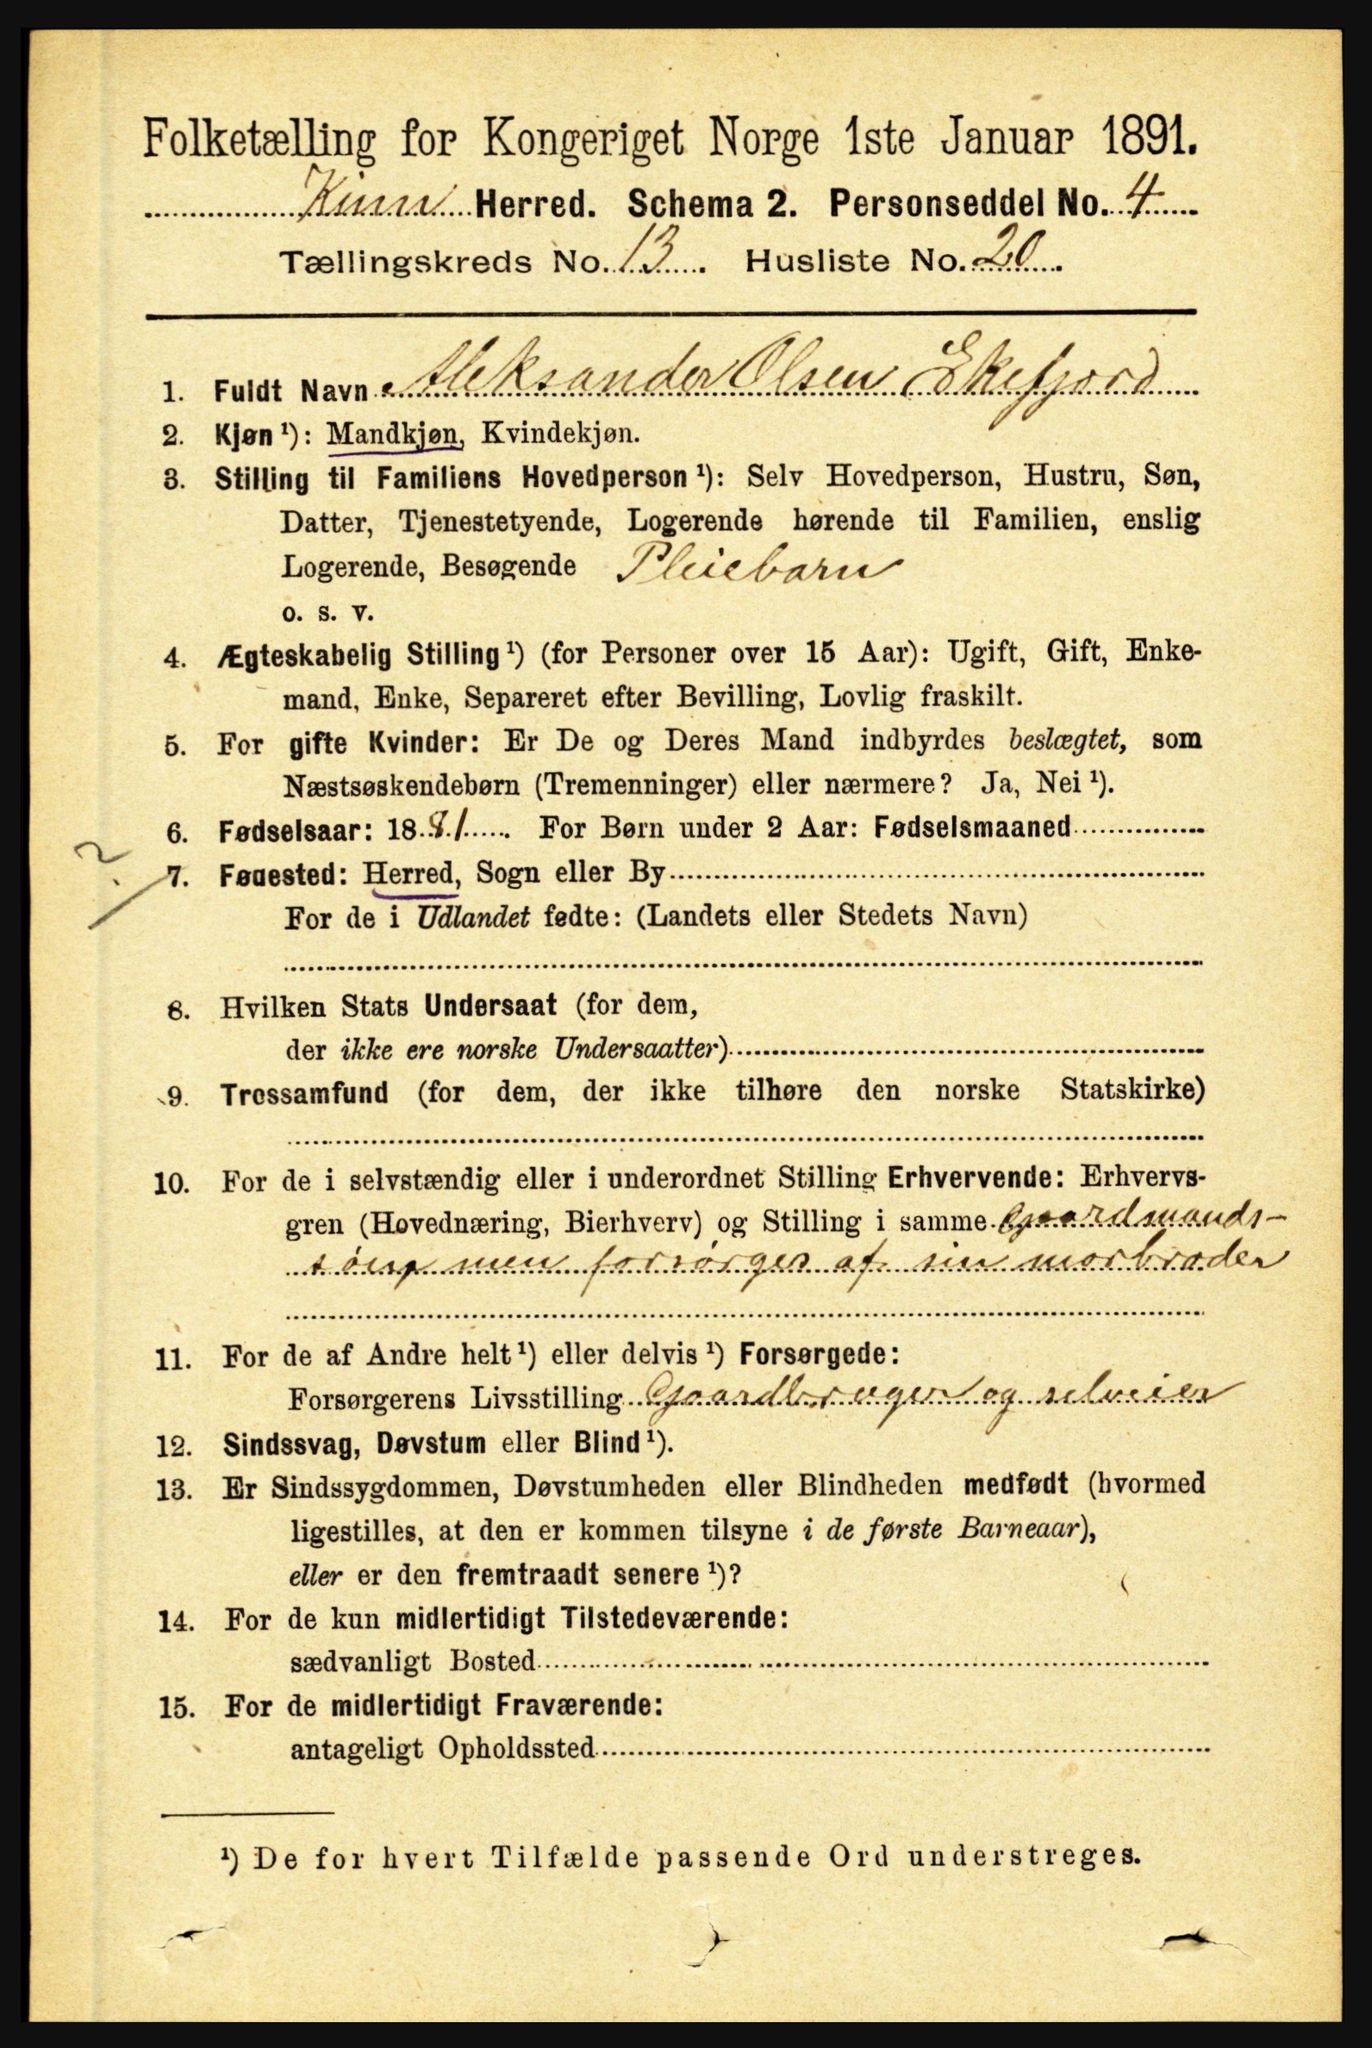 Folketælling for Kongeriget Norge 1ste Januar 1891.
Kinn Herred. Schema 2. Personseddel No. 4
Tællingskreds No. 13. Husliste No. 20.
1. Fuldt Navn Aleksander Olsen Ekefjord
2. Kjøn ¹): Mandkjøn, Kvindekjøn.
3. Stilling til Familiens Hovedperson ¹): Selv Hovedperson, Hustru, Søn,
Datter, Tjenestetyende, Logerende hørende til Familien, enslig
Logerende, Besøgende Pleiebarn
o. s. v.
4. Ægteskabelig Stilling ¹) (for Personer over 15 Aar): Ugift, Gift, Enke-
mand, Enke, Separeret efter Bevilling, Lovlig fraskilt.
5. For gifte Kvinder: Er De og Deres Mand indbyrdes beslægtet, som
Næstsøskendebørn (Tremenninger) eller nærmere? Ja, Nei ¹).
6. Fødselsaar: 1881. For Børn under 2 Aar: Fødselsmaaned
?
7. Fødested: Herred, Sogn eller By
For de i Udlandet fødte: (Landets eller Stedets Navn)
8. Hvilken Stats Undersaat (for dem,
der ikke ere norske Undersaatter)
9. Trossamfund (for dem, der ikke tilhøre den norske Statskirke)
10. For de i selvstændig eller i underordnet Stilling Erhvervende: Erhvervs-
gren (Hovednæring, Bierhverv) og Stilling i samme Gaardmands-
søn, men forsørges af sin morbroder
11. For de af Andre helt ¹) eller delvis ¹) Forsørgede:
Forsørgerens Livsstilling Gaardbruger og selveier
12. Sindssvag, Døvstum eller Blind ¹).
13. Er Sindssygdommen, Døvstumheden eller Blindheden medfødt (hvormed
ligestilles, at den er kommen tilsyne i de første Barneaar),
eller er den fremtraadt senere ¹)?
14. For de kun midlertidigt Tilstedeværende:
sædvanligt Bosted
15. For de midlertidigt Fraværende:
antageligt Opholdssted
¹) De for hvert Tilfælde passende Ord understreges.